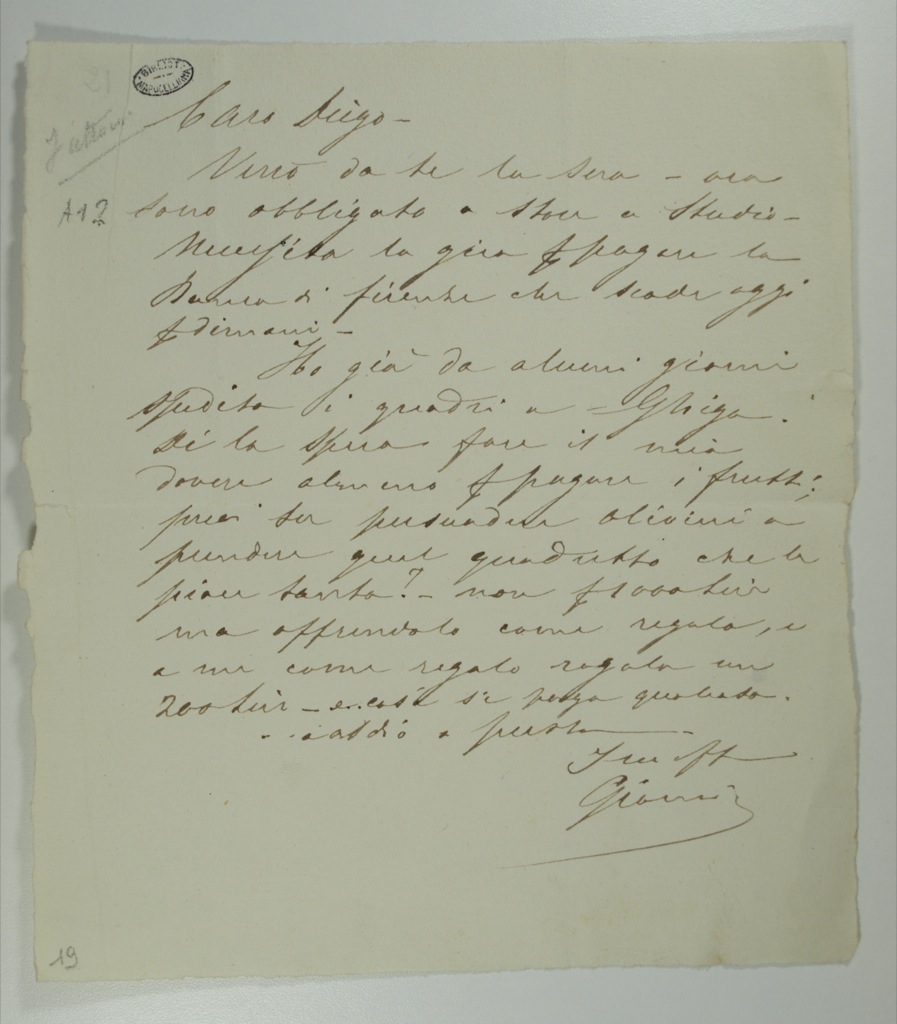 BIBLIOT. MARUCELLIANA
Caro Diego -
A 1 2
Verrò da te la sera - ora
sono obbligato a stare a Studio -
Necessita la gira p pagare la
Banca di firenze che scade oggi
p dimani -
Ho già da alcuni giorni
spedito i quadri a - Ghiga.
Di la spero fare il mio
dovere almeno p pagare i frutti;
puoi tu persuadere olivieri a
prendere quel quadretto che le
piace tanto? - non p 1000 lire
ma offrendolo come regalo, e
a me come regalo regala un
200 lire - e così si perza qualcosa.
addio a presto
Tuo aff
Giovanni
19